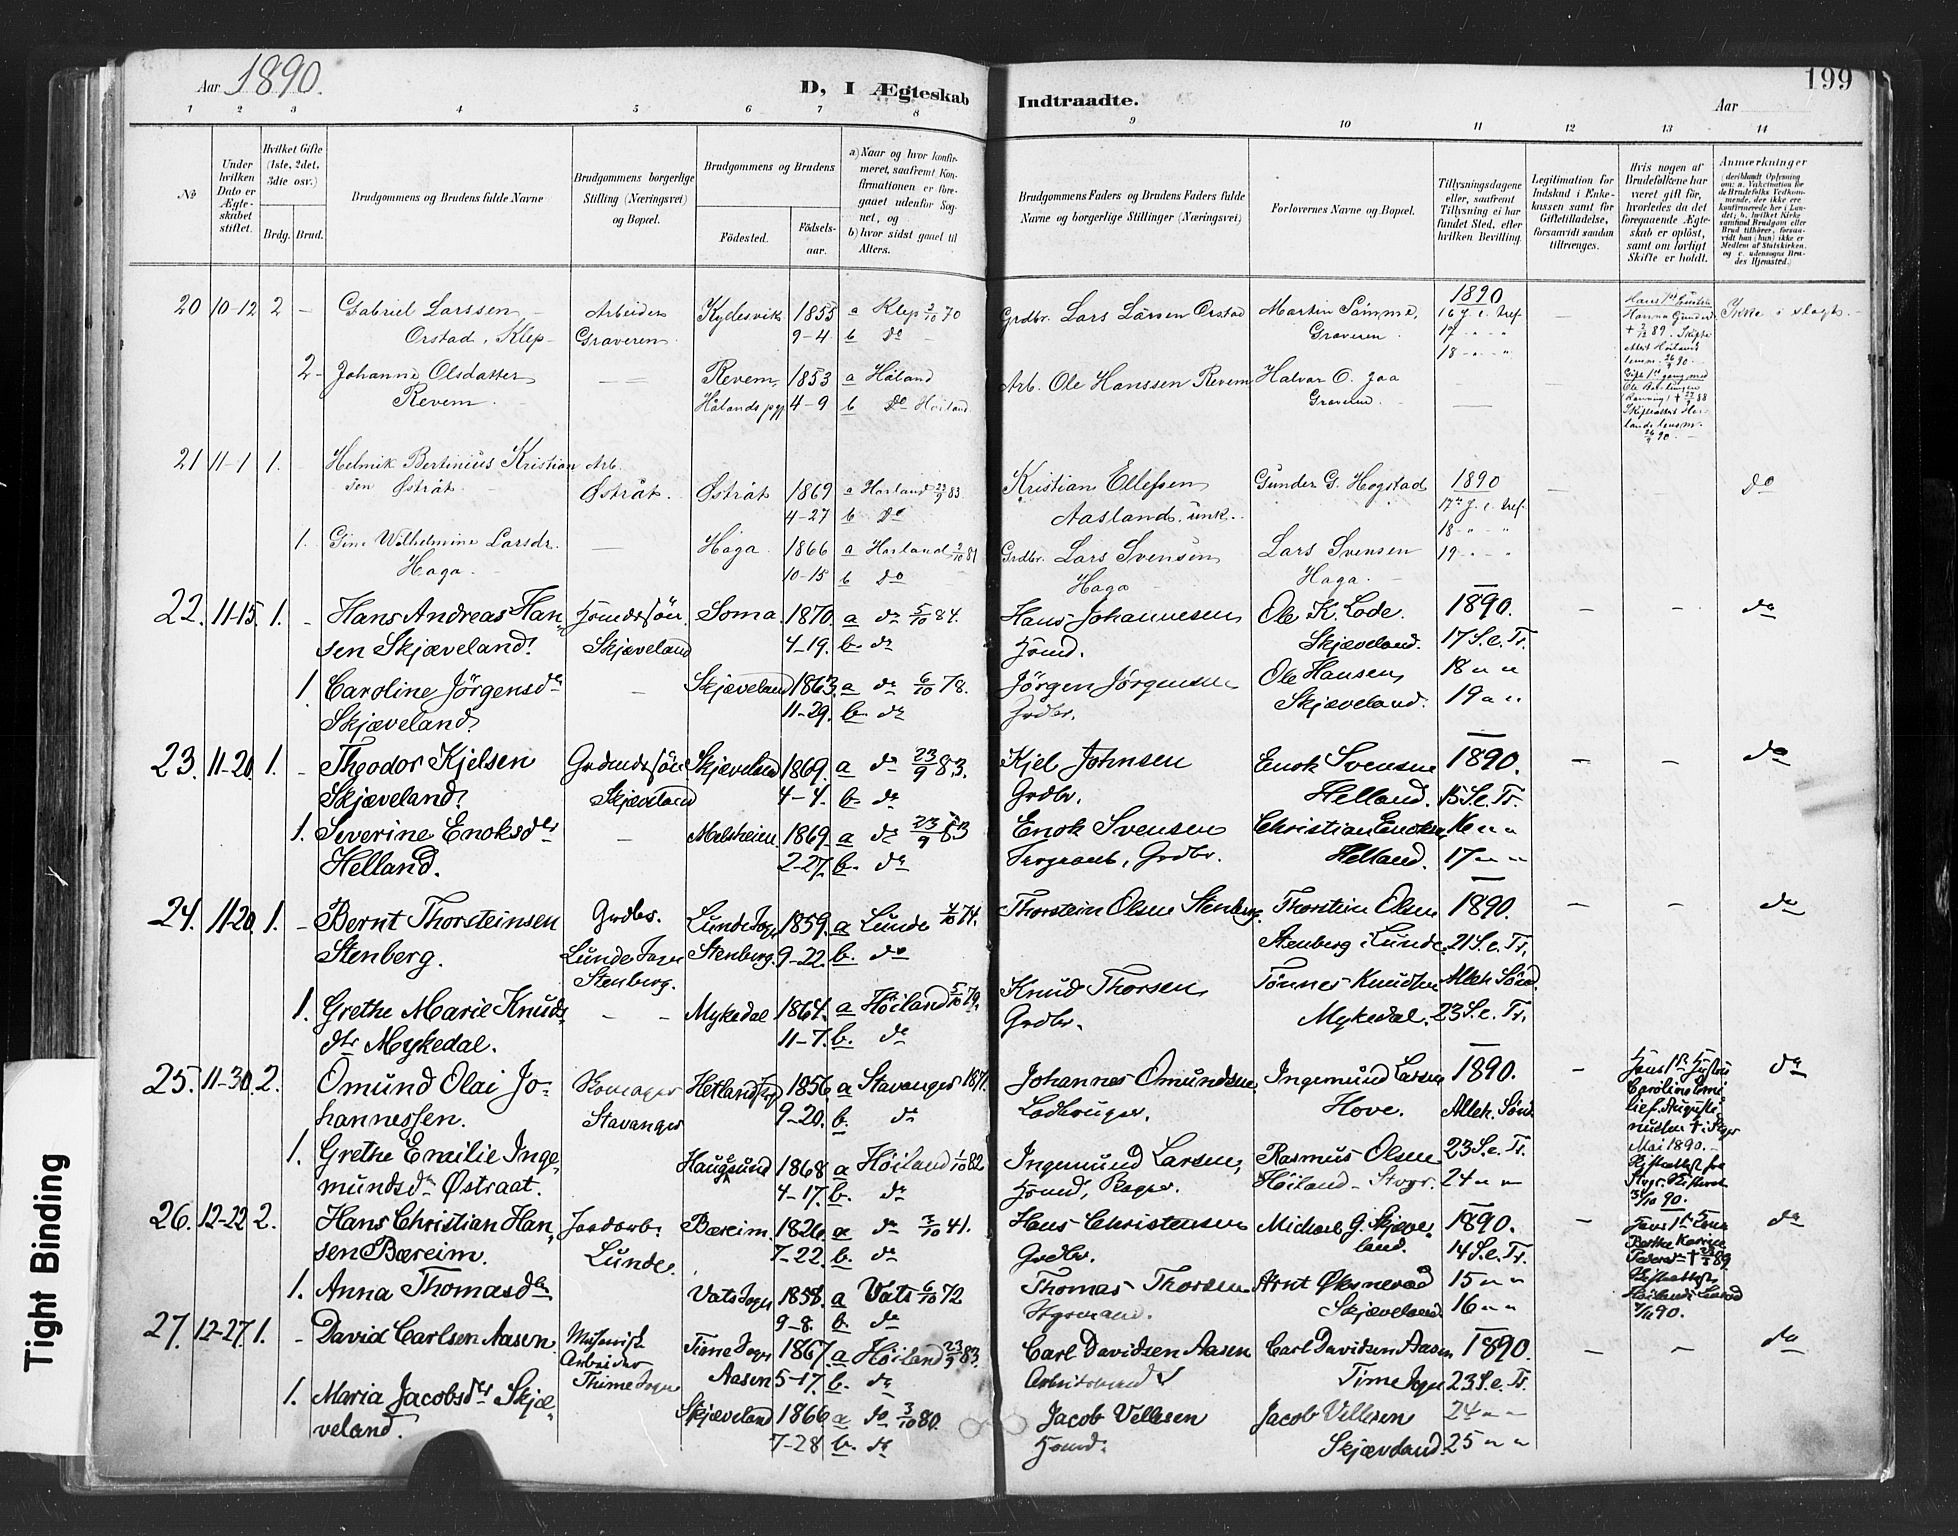 Aar 1890.
D, I Ægteskab
Indtraadte.
Aar
199
1 2 3 4 5 6 7 8 9 10 11 12 13 14
№
Under hvilken Dato er Ægteskabet stiftet.
Hvilket Gifte (1ste, 2det, 3die osv.)
Brdg. Brud.
Brudgommens og Brudens fulde Navne
Brudgommens borgerlige Stilling (Næringsvei) og Bopæl.
Brudgommens og Brudens
Fødested.
Fødselsaar.
a) Naar og hvor konfirmeret, saafremt Konfirmationen er foregaaet udenfor Sognet, og
b) hvor sidst gaaet til Alters.
Brudgommens Faders og Brudens Faders fulde Navne og borgerlige Stillinger (Næringsvei)
Forlovernes Navne og Bopæl.
Tillysningsdagene eller, saafremt Tillysning ei har fundet Sted, efter hvilken Bevilling.
Legitimation for Indskud i Enkekassen samt for Giftetilladelse, forsaavidt saadan tiltrænges.
Hvis nogen af Brudefolkene har været gift før, hvorledes da det foregaaende Ægteskab er opløst, samt om lovligt Skifte er holdt.
Anmærkninger (deriblandt Oplysning om: a. Vakcination for de Brudefolks Vedkommende, der ikke ere konfirmerede her i Landet; b. hvilket Kirkesamfund Brudgom eller Brud tilhører, forsaavidt han (hun) ikke er Medlem af Statskirken, og c. udensogns Brudes Hjemsted.)
20 10-12 2 - Gabriel Larssen Arbeider Kydlesvik 1855 a Klep 2/10 70 Grdbr. Lars Larsen Orstad Martin Sømme, 1890 Ikke i slagt.
Orstad, Klep Graveren 9-4 b do Graveren 16 S. e. tref
17 " " "
18 " " "
2 - Johanne Olsdatter Revem, 1853 a Håland Arb. Ole Hanssen Revem Halvar O. Joa
Revem. Hålands pgj 4-9 b do Høiland Graveren
21 11-1 1. Helmik Bertinius Kristian Arb.
sen Østråt. Østråt. Østråt 1869 a Høiland 23/9 83 Kristian Ellefsen Gunder G. Hogstad 1890 do
4-27 b do Aasland, unk. 17de S. e. tref.
18 " " "
1. Gine Wilhelmine Larsdr. - Haga. 1866 a Høiland 2/10 81 Grdbr. Lars Svensen Lars Svensen 19 - " -
Haga. 10-15 b do Haga Haga.
22. 11-15. 1. - Hans Andreas Han- Hsmdssøn Soma. 1870. a do 5/10 84. Hans Johannesen Ole K. Lode. 1890. - - do
sen Skjæveland. Skjæveland 4-19. b. do Hsmd. Skjæveland. 17 S. e. Tr.
1. Caroline Jørgensdr - Skjæveland 1863. a do 6/10 78. Jørgen Jørgensen Ole Hansen, 18 " "
Skjæveland. 11-29. b. do Grdbr. Skjæveland. 19 " "
23. 11-20. 1. - Theodor Kjelsen Grdmdssøn Skjæveland 1869. a do 23/9 83. Kjel Johnsen Enok Svensen 1890. - - do
Skjæveland. Skjæveland 4-4. b. do Grdbr. Helland. 15 S. e. Tr.
1. Severine Enoksdtr - Melsheien. 1869. a do 23/9 83 Enok Svensen Christian Enoksen, 16 " "
Helland. 2-27. b. do Grdbr. Helland. 17 " "
24. 11-20. 1. - Bernt Thorsteinsen Grdbr. Lunde Sogn 1859. a Lunde 4/10 74. Thorstein Olsen Stenberg. Thorstein Olsen 1890. - - do
Stenberg. Lunde Sogn Stenberg. Stenberg. 9-22. b. do Stenberg i Lunde. 21 S. e. Tr.
1. Grethe Marie Knuds- - - Mykedal 1864. a Høiland 5/10 79. Knud Thorsen, Tønnes Knudsen Alleh. Sønd.
dtr Mykedal. 11-7. b. do Grdbr. Mykedal. 23 S. e. Tr.
25. 11-30. 2. Omund Olai Jo- Hetland Sogn 1856 a Stavanger 1871. Johannes Omundsen. Ingemund Larsen 1890. - do
hannessen. Stavanger 9-20. b. do Hove. Alleh. Sønd.
1. Grethe Emilie Inge- Haugsund 1868 a Høiland 1/10 82 Ingemund Larsen, Rasmus Olsen 23 S. e. Tr.
mundsdr Østraat. 4-17. b. do Hsmd, Høiland - Stvgr. 24 " "
26. 12-22 2. Hans Christian Han- Jordarb. Bæreim. 1826. a do 3/10 41. Hans Christensen Michael G. Skjæve- 1890. - do
sen Bæreim. Lunde. 7-22. b. do Grdbr. land. 14 S. e. Tr.
1. Anna Thomasdtr Vats Sogn 1858. a Vats 6/10 72 Thomas Thorsen Arnt Øksnevad 15 " "
9-8. b. do Skjæveland 16 " "
27. 12-27. 1. - David Carlsen Aasen Time Sogn 1867. a Høiland 23/9 83. Carl Davidsen Aasen Carl Davidsen Aasen 1890. - - do
Arbeider Thime Sogn Aasen 5-17. b. do Arbeidsmand Time Sogn 23 S. e. Tr.
1. Maria Jacobsdtr Skjæ- Skjæveland 1866 a do 3/10 80. Jacob Villesen Jacob Villesen 24 " "
veland. 7-28 b. do Hsmd. Skjæveland. 25 " "
Tight Binding